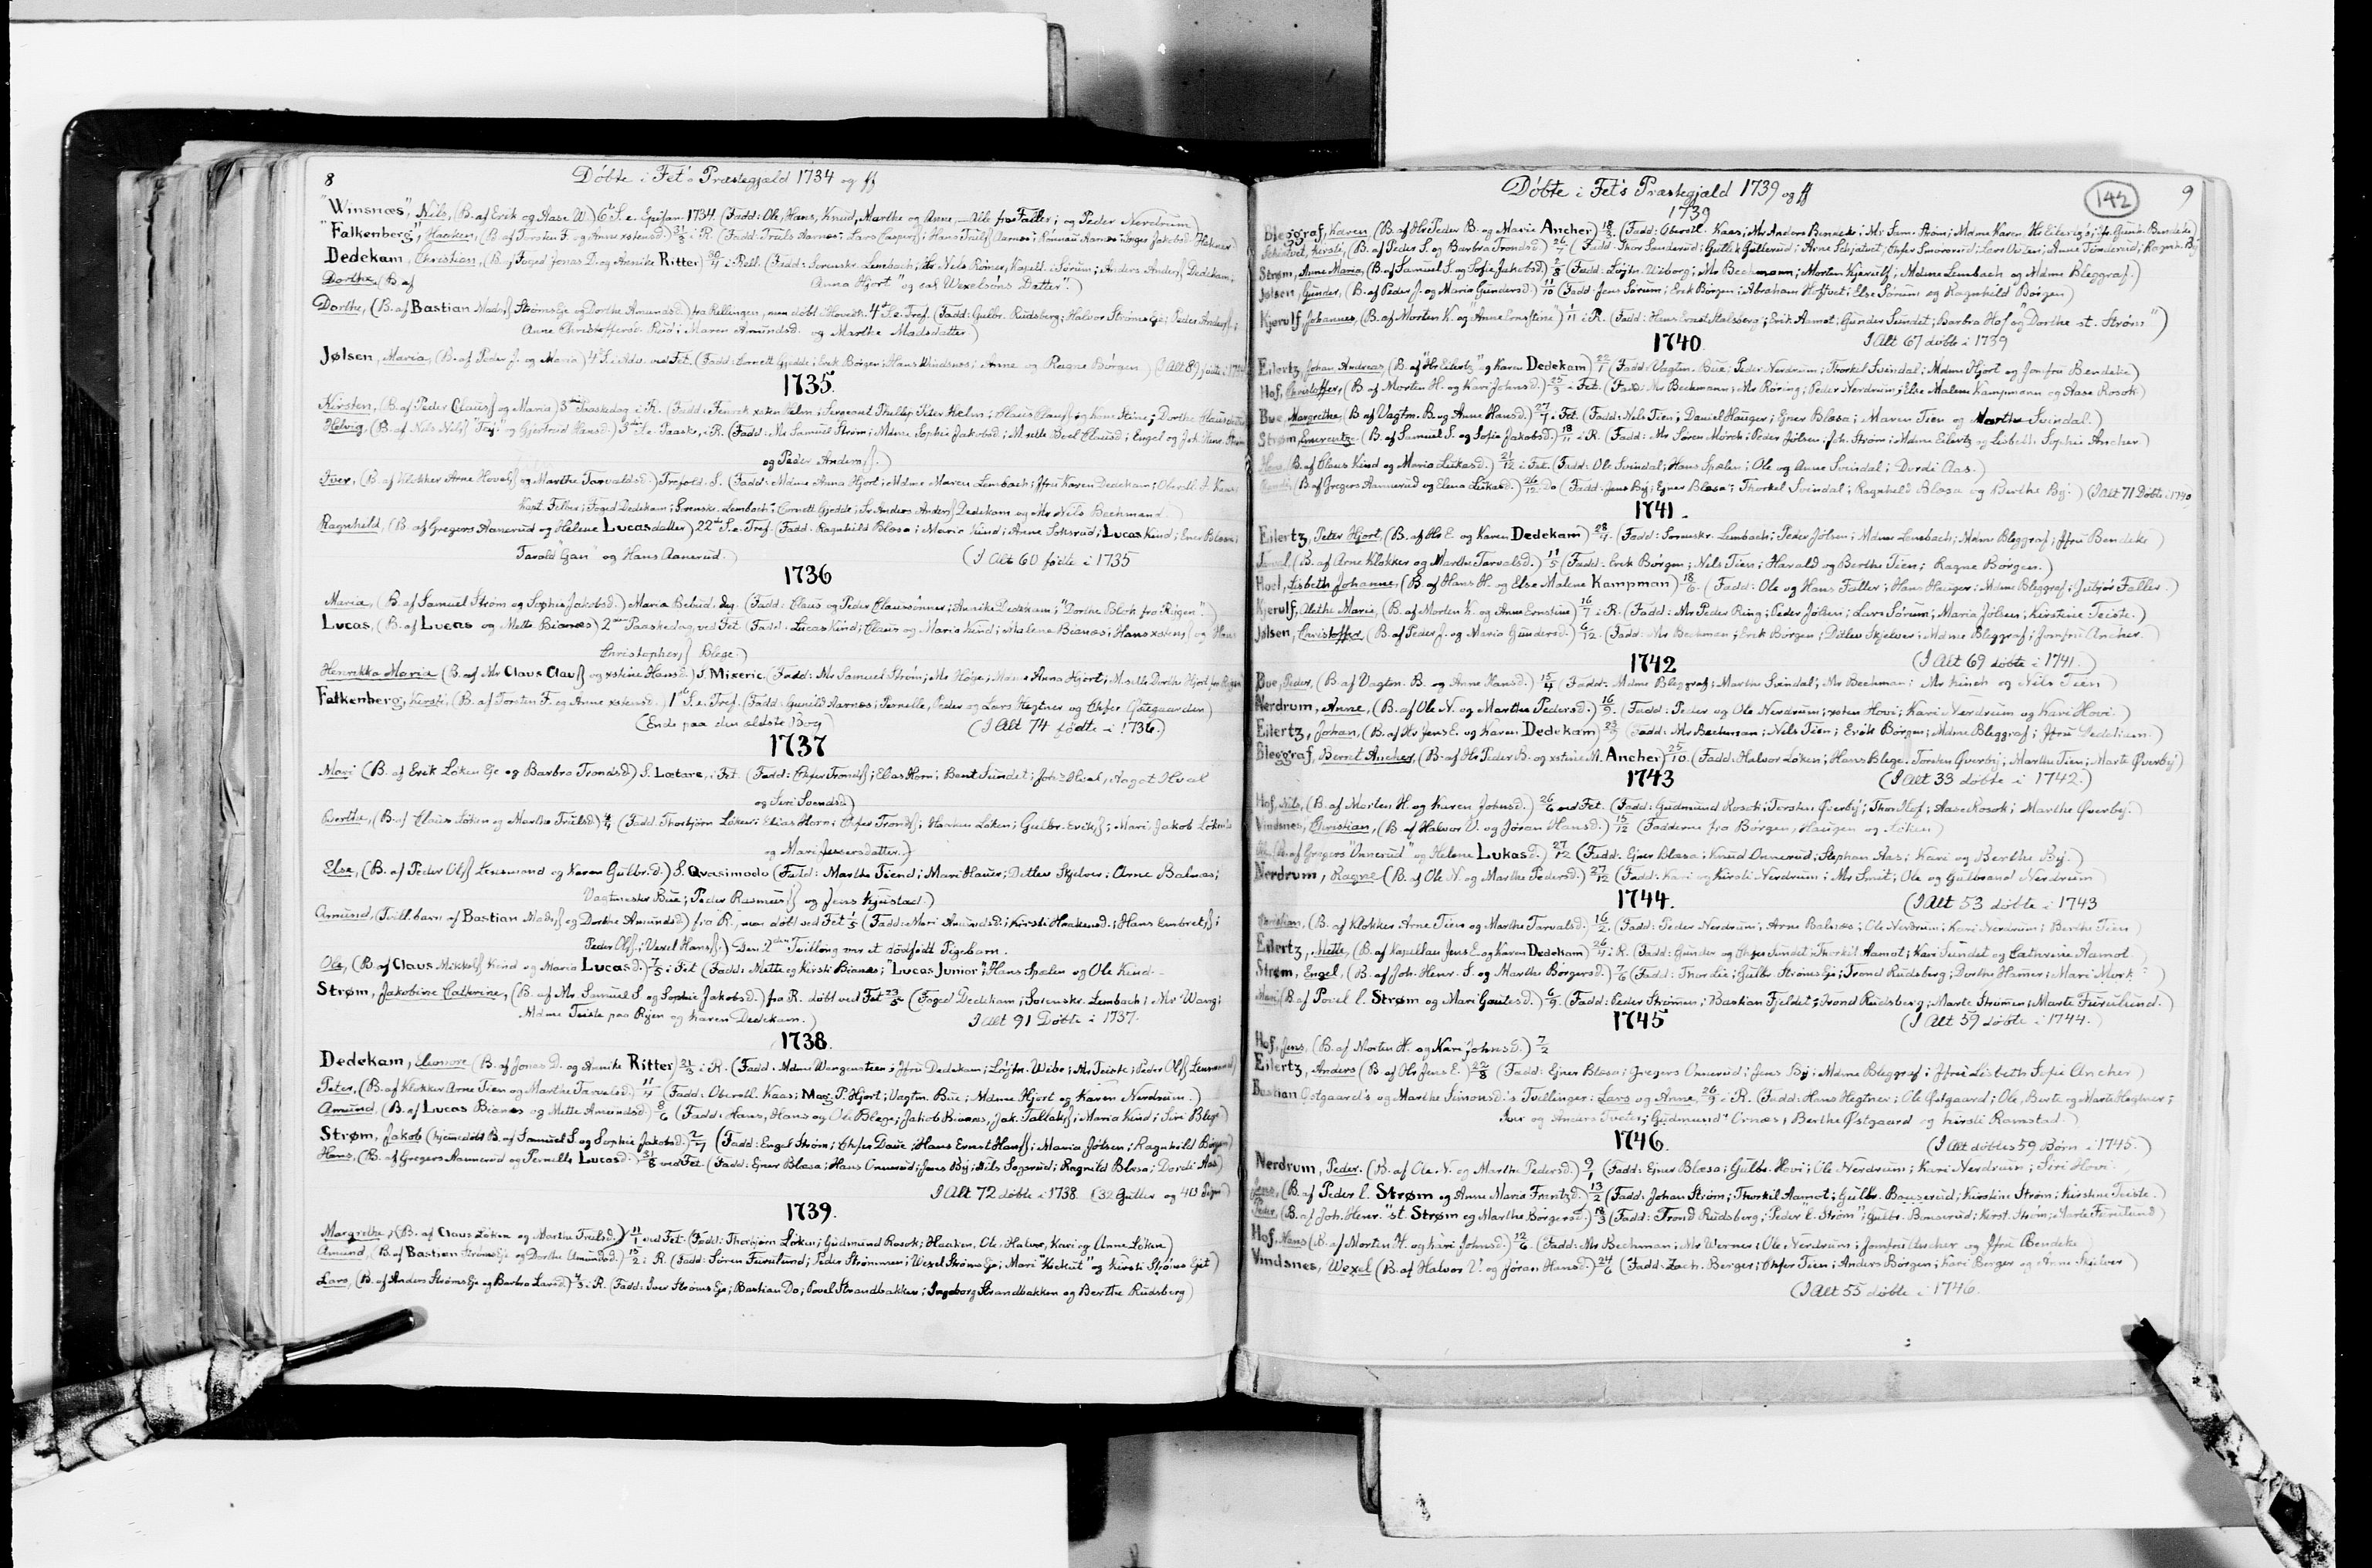 8
Döbte i Fet's Præstegjæld 1734 og ff
"Winsnæs", Nils, (B. af Erik og Aase W.) 6te S. e. Epifan. 1734. (Fadd: Ole, Hans, Knud, Marthe og Anne, - Alle fra Faller; og Peder Nerdrum)
"Falkenberg", Haaken, (B. af Torsten F. og Anne xstensd.) 31/3 i R. (Fadd: Truls Aarnæs; Lars; Hans Truls Aarnæs; Rønnau Aarnæs; Inger Jakobsd.
Dedekam, Christian, (B. af Foged Jonas D. og Annike Ritter) 30/4 i Rell. (Fadd: Sorenskr. Lembach; Hr Nels Römer, Kapell. i Sörum; Anders Anders Dedekam;
Dorthe, (B. af
Anna Hjort "og sal Wexelsöns Datter".)
Dorthe, (B. af Bastian Mads Ströms Eje og Dorthe Amundsd.) fra Rellingen, men döbt i Hovedk. 4de S. e. Tref. (Fadd: Gulbr. Rudsberg; Halvor Ströms Eje; Peder Anders;
Anne Christoffersd. Rud; Maren Amundsd. og Marthe Madsdatter)
Jølsen, Maria, (B. af Peder J. og Maria) 4 S. i Adv. ved Fet. (Fadd: Cornett Gjedde; Erik Börgen; Hans Windsnæs; Anne og Ragne Börgen.) (I Alt 89 födte i 1734
1735.
Kirsten, (B. af Peder Claus og Maria) 3die Paaskedag i R. (Fadd: Fenrek xsten Helm; Sergeant Thellef; Peter Helm; Claus Claus og hans Stine; Dorthe Clausdatter
Helvig, (B. af Nels Nels "Tey" og Gjertrud Hansd.) 3die S. e. Paask. i R. (Fadd: Mr Samuel Ström; Mdme Sophie Jakobsd; Mselle Boel Clausd; Engel og Joh. Henr. Ström
og Peder Anders.)
Iver, (B. af Klokker Arne Hovels og Marthe Tarvaldsd.) Trefold. S. (Fadd: Mdme Anna Hjort; Mdme Maren Lembach; Jfru Karen Dedekam; Oberstl. J. Kaas;
Kapt. Felber; Foged Dedekam; Sorenskr. Lembach; Cornett Gjedde; Sr Anders Anders Dedekam og Mr Nils Bechmand.)
Ragnhild, (B. af Gregers Aanerud og Helene Lucasdatter) 22de S. e. Tref. (Fadd: Ragnhild Blæsa; Maria Kind; Anne Soksrud; Lucas Kind; Ener Blæsa;
Tarald "Gan" og Hans Aanerud.) (I Alt 60 födte i 1735
1736
Maria, (B. af Samuel Ström og Sophie Jakobsd.) Maria Bebud. dag. (Fadd: Claus og Peder Claussönner; Annike Dedekam; "Dorthe Blok fra Riigen".)
Lucas, (B. af Lucas og Mette Bianæs) 2den Paaskedag, ved Fet (Fadd: Lucas Kind; Claus og Maria Kind; Malene Bianæs; Hans xstens og Hans
Christophers Blege.)
Henrikka Maria (B. af Mr Claus Claus og xstine Hansd.) S. Miseric. (Fadd: Mr Samuel Ström; Mr Höge; Mdme Anna Hjort; Mselle Dorthe Hjort fra Riigen
Falkenberg, Kirsti, (B. af Torsten F. og Anne xstensd.) 1ste S. e. Tref. (Fadd: Gunild Aarnæs; Pernelle, Peder og Lars Hegtner og Chfer Östegaarden)
(Ende paa den ældste Bog) (I Alt 74 födte i 1736.)
1737
Mari (B. af Erik Löken Eje og Barbra Trondsd) S. Lætare, i Fet. (Fadd: Chfer Tronds; Elias Horn; Bent Sundet; Johs Hval, Aagot Hval
og Siri Svendsd)
Berthe, (B. af Claus Löken og Marthe Trulsd) (Fadd: Thorbjörn Löken; Elias Horn; Chfer Tronds; Haaken Löken; Gulbr. Eriks; Mari, Jakob Löken's
og Mari Jversdatter.)
Else, (B. af Peder Ols Lensmand og Karen Gulbr.d.) S. Qvasimodo (Fadd: Marthe Tiend; Mari Hauer; Detlev Skjelver; Arne Balnæs;
Vagtmester Bue; Peder Rasmus og Jens Kjustad.)
Amund, (Tvill. barn af Bastian Mads og Dorthe Amundsd) fra R., men döbt ved Fet 1/5 (Fadd: Mari Amundsd; Kirsti Haakensd; Hans Embrets;
Peder Ols; Vexel Hans.) Den 2den Tvilling var et dödfødt Pigebarn.
Ole, (B. af Claus Mikkels Kind og Maria Lucasd.) 7/5 i Fet (Fadd: Mette og Kirsti Bianæs; "Lucas Junior"; Hans Spælen og Ole Kind.
Strøm, Jakobine Cathrine, (B. af Mr Samuel S. og Sophie Jakobsd.) fra R. döbt ved Fet 23/5 (Foged Dedekam; Sorenskr. Lembach; Mr Wang;
Mdme Teiste paa Ryen og Karen Dedekam.) I Alt 91 Döbte i 1737.
1738.
Dedekam, Eleonore (B. af Jonas D. og Annike Ritter) 21/3 i R. (Fadd: Mdme Wangensteen; Jfru Dedekam; Löjtn. Wibe; Mr Teiste; Peder Ols Lensmand
Peter, (B. af Klokker Arne Tien og Marthe Tarvalsd.) 11/4 (Fadd: Oberstl. Kaas; Mag. P. Hjort; Vagtm. Bue; Mdme Hjort og Karen Nerdrum.)
Amund, (B. af Lucas Bianæs og Mette Amundsd) 8/6 (Fadd: Hans, Hans og Ole Blege; Jakob Bianæs, Jak. Tallaks; Maria Kind; Siri Blege)
Strøm, Jakob (hjemedöbt B. af Samuel S. og Sophie Jakobsd.) 2/7 (Fadd: Engel Ström; Chfer Daue; Hans Ernst Hans; Maria Jölsen; Ragnhild Börgen)
Hans, (B. af Gregers Aannerud og Pernelle Lucasd.) 31/8 ved Fet. (Fadd: Ejner Blæsa; Hans Onnerud; Jens Bij; Nils Sogsrud; Ragnild Blæsa; Dordi Aas)
I Alt 72 döbte i 1738. (32 Gutter og 40 Piger)
1739.
Margrethe, (B. af Claus Löken og Marthe Trulsd.) 11/1 ved Fet. (Fadd: Thorbjörn Löken; Gudmund Rosok; Haaken, Ole, Halvor, Kari og Anne Löken)
Amund, (B. af Bastian Ströms Eje og Dorthe Amundsd.) 15/2 i R. (Fadd: Sören Furulund; Peder Strömmen; Wexel Ströms Eje; Mari "Kiekut" og Kirsti Ströms Ejet)
Lars, (B. af Anders Ströms Eje og Barbra Larsd.) /3 i R. (Fadd: Iver Ströms Eje; Bastian Do; Povel Strandbakken; Ingeborg Strandbakken og Berthe Rudsberg)
142
9
Döbte i Fet's Præstegjæld 1739 og ff
1739
Bleggraf, Karen (B. af Hr Peder B. og Marie Ancher) 18/3. (Fadd: Oberstl. Kaas; Mr Anders Bendeke; Mr Sam. Ström; Mdme Karen Hr Eilertz's; Jfr. Gunh. Bendeke)
Kirsti, (B. af Peder S. og Barbra Trondsd) 26/ (Fadd: Thor Sunderud; Gullek Gullerud; Arne; Chfer Smörerud; Lars Veten; Anne Tönderud; Ragnh. Bij
Strøm, Anne Maria, (B. af Samuel S. og Sofie Jakobsd.) 2/8 (Fadd: Löjtn. Wiborg; Mr Bechmann; Morten Kjerulf; Mdme Lembach og Mdme Bleggraf.)
Jølsen, Gunder, (B. af Peder J. og Maria Gundersd.) 11/10 (Fadd: Jens Sörum; Erek Börgen; Abraham Hoftvet; Else Sörum og Ragnhild Börgen)
Kjerulf, Johannes, (B. af Morten K. og "Anne Ernstine") 1/11 i R. (Fadd: Hans Ernst Stalsberg; Erik Aamot; Gunder Sundet; Barbra Hof og "Dorthe st. Ström")
1740. I Alt 67 döbte i 1739
Eilertz, Johan Andreas, (B. af "Hr Eilertz" og Karen Dedekam) 22/1 (Fadd: Vagtm. Bue; Peder Nerdrum; Thorkel Svindal; Mdme Hjort og Jomfru Bendeke)
Hof, Christoffer, (B. af Morten H. og Kari Johnsd.) 25/3 i Fet. (Fadd: Mr Bechmann; Mr Röring; Peder Nerdrum; Else Malene Kampmann og Aase Rosok.)
Bue, Margrethe (B. af Vagtm. B. og Anne Hansd.) 27/7 i Fet. (Fadd: Nels Tien; Daniel Hauger; Ejner Blæsa; Maren Tien og Marthe Svindal.)
Strøm, Emerentze (B. af Samuel S. og Sofie Jakobsd.) 18/11 i R. (Fadd: Mr Sören Mörch; Peder Jölsen; Joh. Ström; Mdme Eilertz og Lisbeth Sophie Ancher.)
Hans, (B. af Claus Kind og Maria Lukasd.) 21/12 i Fet. (Fadd: Ole Svindal; Hans Spælen; Ole og Anne Svindal; Dordi Aas.)
(B. af Gregers Aannerud og Elena Lukasd.) 26/12 Do (Fadd: Jens Bij; Ejner Blæsa; Thorkel Svindal; Ragnheld Blæsa og Berthe Bij) (I Alt 71 Döbte i 1740
1741.
Eilertz, Peter Hjort, (B. af Hr E. og Karen Dedekam) 28/4. (Fadd: Sorenskr. Lembach; Peder Jölsen; Mdme Lembach; Mdme Bleggraf; Jfru Bendeke)
(B. af Arne Klokker og Marthe Tarvalsd.) 11/5 (Fadd: Erek Börgen; Nils Tien; Harald og Berthe Tien; Ragne Börgen.)
Hoel, Lisbeth Johanne, (B. af Hans H. og Else Malene Kampman) 18/6. (Fadd: Ole og Hans Faller; Hans Hauger; Mdme Bleggraf; Jutsör Faller.)
Kjerulf, Alethe Maria, (B. af Morten K. og Anne Ernstine) 16/7 i R. (Fadd: Mr Peder Ring; Peder Jölsen; Lars Sörum; Maria Jölsen; Kirstine Teiste.)
Jølsen, Christoffer, (B. af Peder J. og Maria Gundersd.) 6/12. (Fadd: Mr Bechman; Erek Börgen; Ditlev Skjelver; Mdme Bleggraf; Jomfru Ancher.
1742 (I Alt 69 döbte i 1741.)
Bue, Peder, (B. af Vagtm. B. og Anne Hansd.) 15/4 (Fadd: Mdme Bleggraf; Marthe Svindal; Mr Bechman; Mr Kinch og Nils Tien)
Nerdrum, Anne, (B. af Ole N. og Marthe Pedersd.) 16/9. (Fadd: Peder og Ole Nerdrum; xsten Hovi; Kari Nerdrum og Kari Hovi.)
Eilertz, Johan, (B. af Hr Jens E. og Karen Dedekam) 23/9 (Fadd: Mr Bechman; Nils Tien; Erik Börgen; Mdme Bleggraf; Jfru Dedekam.)
Bleggraf, Bernt Ancher, (B. af Hr Peder B. og xstine M. Ancher) 25/10. (Fadd: Halvor Löken; Hans Blege, Torsten Qverby; Marthe Tien; Marte Qverby)
1743 (I Alt 33 döbte i 1742.)
Hof, Nils, (B. af Morten H. og Karen Johnsd.) 26/6 ved Fet. (Fadd: Gudmund Rosok; Torsten Qverby; Thor Hof; Aase Rosok; Marthe Qverby.)
Vindsnes, Christian, (B. af Halvor V. og Jöran Hansd.) 15/12 (Fadderne fra Börgen, Haugen og Löken)
Ole, (B. af Gregers "Onnerud" og Helene Lukasd.) 27/12 (Fadd: Ejner Blæsa; Knud Onnerud; Stephan Aas; Kari og Berthe Bij.)
Nerdrum, Ragne (B. af Ole N. og Marthe Pedersd.) 27/12 (Fadd: Kari og Kirsti Nerdrum; Mr Smit; Ole og Gulbrand Nerdrum
1744. (I Alt 53 döbte i 1743
Christian, (B. af Klokker Arne Tien og Marthe Tarvalsd.) 16/2. (Fadd: Peder Nerdrum; Arne Balnæs; Ole Nerdrum; Kari Nerdrum; Berthe Tien)
Eilertz, Mette, (B. af Kapellan Jens E. og Karen Dedekam) 26/4 i R. (Fadd: Gunder og Chfer Sundet; Thorkil Aamot; Kari Sundet og Cathrine Aamot.
Strøm, Engel, (B. af Joh. Henr. S. og Marthe Börgersd.) 7/6 (Fadd: Thordis; Gulbr. Ströms Eje; Trond Rudsberg; Dorthe Hamer; Mari Mork.)
Mari, (B. af Povel l. Strøm og Mari Gaulesd.) 6/9. (Fadd: Peder Strömmen; Bastian Fjeldet; Trond Rudsberg; Marte Strömmen; Marte Furulund.)
1745 (I Alt 59 döbte i 1744.)
Hof, Jens, (B. af Morten H. og Kari Johnsd.) 7/2
Eilertz, Anders (B. af Hr Jens E.) 22/8 (Fadd: Ejner Blæsa; Gregers Onnerud; Jens Bij; Mdme Bleggraf; Jfru Lisbeth Sofie Ancher)
Bastian Östgaard's og Marthe Simonsd.'s Tvillinger: Lars og Anne, 26/9 i R. (Fadd: Hans Hegtner; Ole Östgaard; Ole, Berte og Marte Hegtner;
Iver og Anders Tveter; Gudmund Ornæs; Berthe Östgaard og Kirsti Ramstad.)
1746. (I Alt döbtes 59 Börn i 1745.)
Nerdrum, Peder. (B. af Ole N. og Marthe Pedersd.) 9/1 (Fadd: Ejner Blæsa; Gulbr. Hovi; Ole Nerdrum; Kari Nerdrum; Siri Hovi.
Jens, (B. af Peder l. Strøm og Anne Maria Frantzd.) 13/2 (Fadd: Johan Ström; Thorkil Aamot; Gulbr. Bouserud; Kirstine Ström; Kirstine Teiste.)
Peder, (B. af Joh. Henr. "st. Strøm og Marthe Börgersd.) 13/3 (Fadd: Trond Rudsberg; Peder "l. Ström"; Gulbr. Bouserud; Kirst. Ström; Marte Furulund)
Hof, Hans (B. af Morten H. og Kari Johnsd.) 12/6. (Fadd: Mr Bechman; Mr Werner; Ole Nerdrum; Jomfru Ancher og Jfru Bendeke)
Vindsnes, Wexel (B. af Halvor V. og Jöran Hansd.) 24/6 (Fadd: Zach. Berger; Chfer Tien; Anders Börgen; Kari Berger og Anne Skjelver)
(I Alt 55 döbte i 1746.